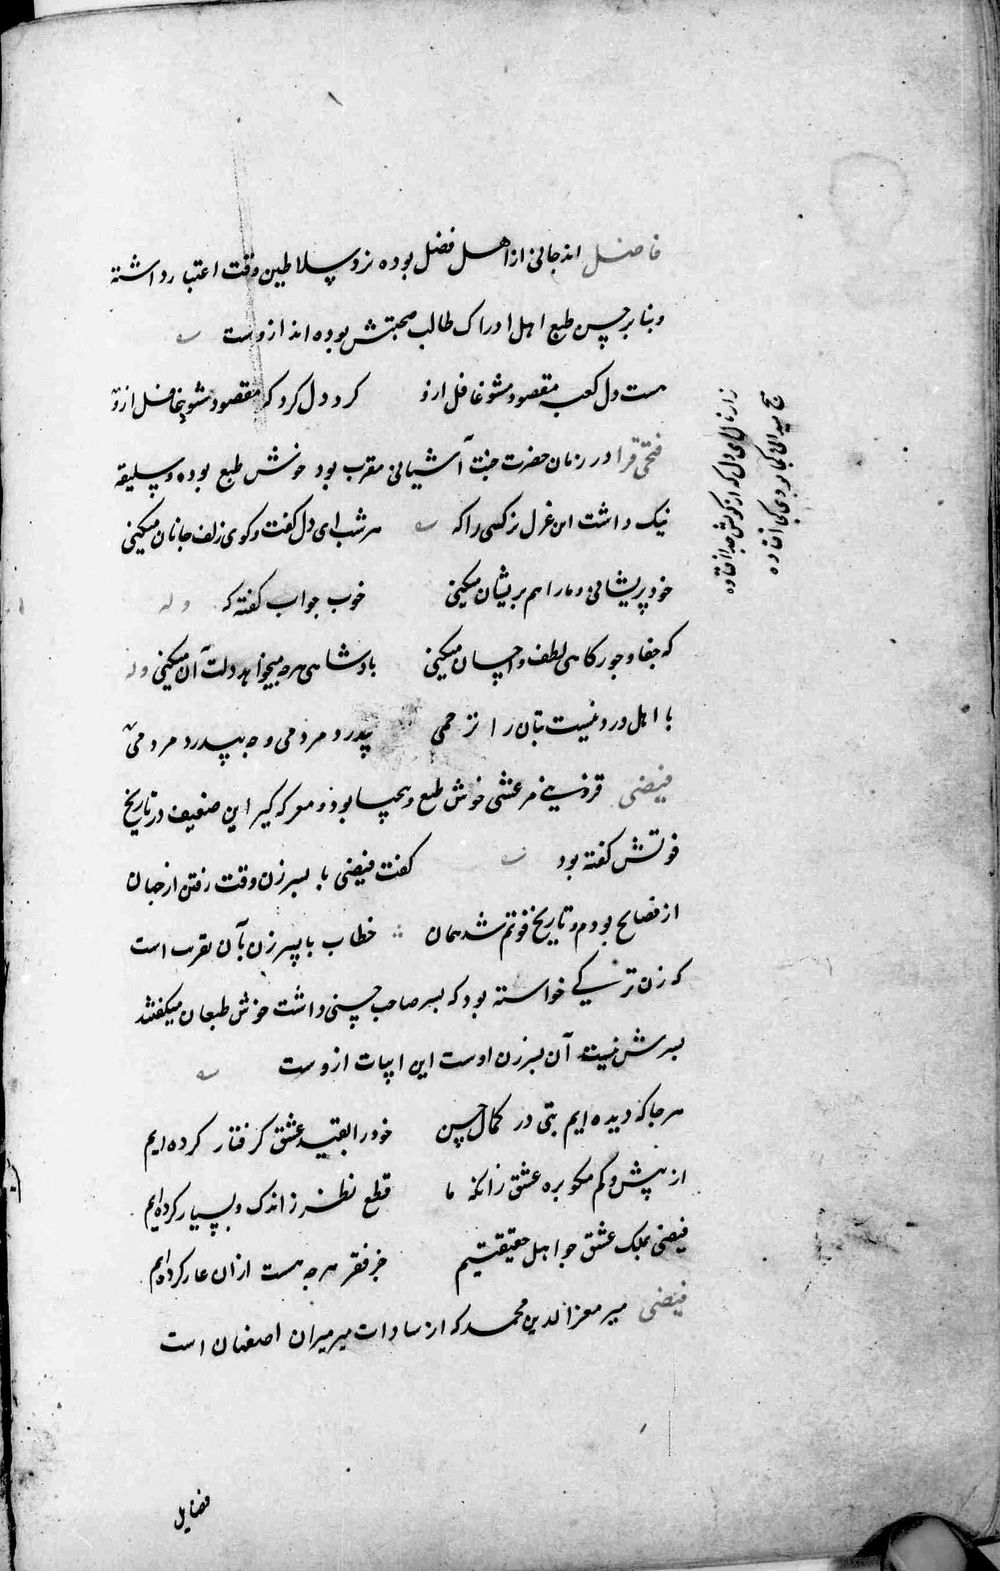 فاضل اندجانی از اهل فضل بوده نزد سلاطین وقت اعتبار داشته
و بنا بر حسن طبع اهل ادراک طالب صحبتش بوده اند ازوست
هست دل کعبه مقصود مشو غافل ازو کرد دل کرد که مقصود مشو غافل ازو
فتحی در زمان حضرت جنت آشیانی مقرب بود خوش طبع بوده و سلیقه
نیک داشت این غزل نرکسی را که هر شب ای دل کفت و کوی زلف جانان میکنی
خود پریشانی و ما را هم پریشان میکنی خوب جواب کفته که وله
که جفا و جور کاهی لطف و احسان میکنی پادشاهی هر چه میخواهد دلت آن میکنی وله
با اهل درد نیست بتان را ترحمی پدرد مردمی و چه بیدرد مردمی
فیضی قزوینی خوش طبع و بود و معرکه کیر این ضعیف در تاریخ
فوتش کفته بود کفت فیضی با پسر زن وقت رفتن از جهان
از فصایح بودم و تاریخ فوتم شد همان خطاب با پسر زن بآن تقریب است
که زن ترکی خواسته بود که پسر صاحب حسنی داشت خوش طبعان میکفتند
پسرش نیست آن پسر زن اوست این ابیات ازوست
هر جا که دیده ایم بتی در کمال حسن خود را بقید عشق کرفتار کرده ایم
از پیش و کم مکو بره عشق زانکه ما قطع نظر ز اندک و بسیار کرده ایم
فیضی بملک عشق چو اهل حقیقتیم جز فقر هر چه هست ازان عار کرده ایم
فیضی میر معزالدین محمد که از سادات میرمیران اصفهان است
فضایل
زار نال ای دل که از کویش جدا افتاده
هیچ میدانی کجا بودی کجا افتاده